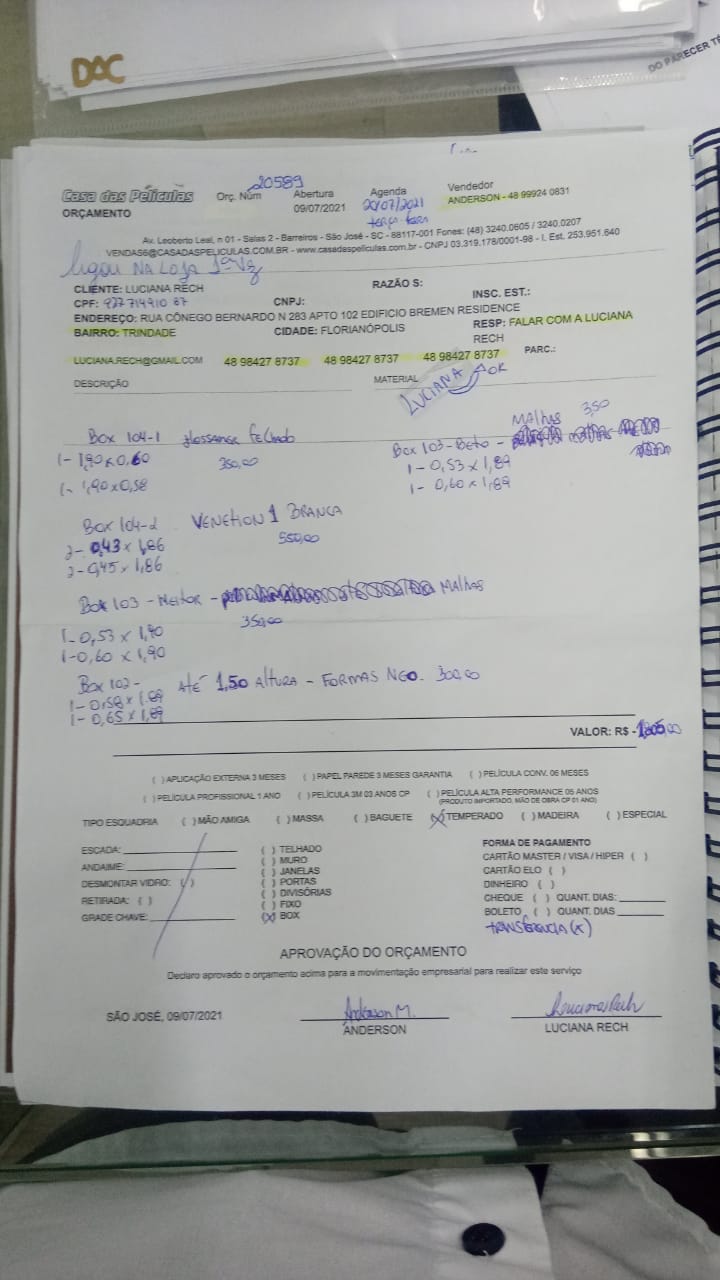 DAC
DO PARECER TÉ
Casa das Películas
ORÇAMENTO
Orç. Núm 20589
Abertura
09/07/2021
Agenda
20/07/2021
terça feira
Vendedor
ANDERSON - 48 99924 0831
Av. Leoberto Leal, n 01 - Salas 2 - Barreiros - São José - SC - 88117-001 Fones: (48) 3240.0605 / 3240.0207
VENDAS6@CASADASPELICULAS.COM.BR - www.casadaspeliculas.com.br - CNPJ 03.319.178/0001-98 - I. Est. 253.951.640
ligou NA LOJA 1ª Vez
CLIENTE: LUCIANA RECH RAZÃO S:
CPF: 927 714910 87 CNPJ: INSC. EST.:
ENDEREÇO: RUA CÔNEGO BERNARDO N 283 APTO 102 EDIFICIO BREMEN RESIDENCE
BAIRRO: TRINDADE CIDADE: FLORIANÓPOLIS RESP: FALAR COM A LUCIANA
RECH
LUCIANA.RECH@GMAIL.COM 48 98427 8737 48 98427 8737 48 98427 8737 PARC.:
DESCRIÇÃO MATERIAL
LUCIANA OK
Box 104-1 Fechado
1- 1,90 x 0,60 350,00
1- 1,90 x 0,58
Box 103 - Beto - MALHAS 350
1- 0,53 x 1,89
1- 0,60 x 1,89
Box 104-2 VENETION 1 BRANCA
2- 0,43 x 1,86 550,00
2- 0,45 x 1,86
Box 103 - Heitor - MALHAS
1- 0,53 x 1,90 350,00
1- 0,60 x 1,90
Box 102 - ATÉ 1,50 ALTURA - FORMAS NGO. 300,00
1- 0,58 x 1,89
1- 0,65 x 1,89
VALOR: R$ - 1.805,00
( ) APLICAÇÃO EXTERNA 3 MESES ( ) PAPEL PAREDE 3 MESES GARANTIA ( ) PELÍCULA CONV. 06 MESES
( ) PELÍCULA PROFISSIONAL 1 ANO ( ) PELÍCULA 3M 03 ANOS CP ( ) PELÍCULA ALTA PERFORMANCE 05 ANOS
(PRODUTO IMPORTADO, MÃO DE OBRA CP 01 ANO)
TIPO ESQUADRIA ( ) MÃO AMIGA ( ) MASSA ( ) BAGUETE (X) TEMPERADO ( ) MADEIRA ( ) ESPECIAL
ESCADA:
ANDAIME:
DESMONTAR VIDRO: ( )
RETIRADA: ( )
GRADE CHAVE:
( ) TELHADO
( ) MURO
( ) JANELAS
( ) PORTAS
( ) DIVISÓRIAS
( ) FIXO
(X) BOX
FORMA DE PAGAMENTO
CARTÃO MASTER / VISA / HIPER ( )
CARTÃO ELO ( )
DINHEIRO ( )
CHEQUE ( ) QUANT. DIAS:
BOLETO ( ) QUANT. DIAS
TRANSFERENCIA (X)
APROVAÇÃO DO ORÇAMENTO
Declaro aprovado o orçamento acima para a movimentação empresarial para realizar este serviço
SÃO JOSÉ, 09/07/2021
Anderson M.
ANDERSON
Luciana Rech
LUCIANA RECH